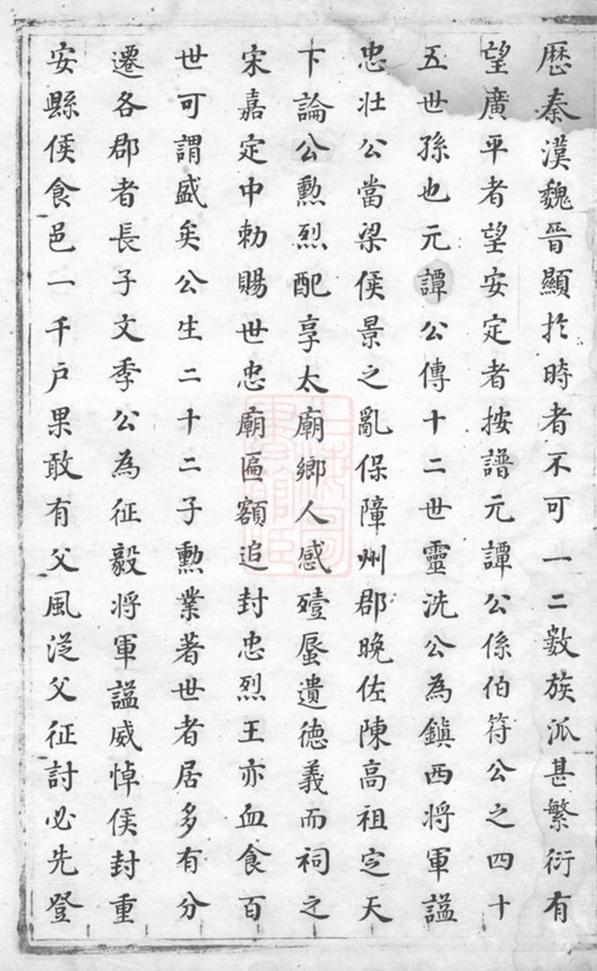 歴秦漢魏晋顯扵時者不可一二數族派甚繁衍有
望廣平者望安定者按譜元譚公係伯符公之四十
五世孫也元譚公傳十二世靈洗公為鎮西将軍諡
忠壮公當梁侯景之亂保障州郡晚佐陳高祖定天
下論公勲烈配享太廟鄉人感殪蜃遺德義而祠之
宋嘉定中勅賜世忠廟匾額追封忠烈王亦血食百
世可謂盛矣公生二十二子勲業著世者居多有分
遷各郡者長子文季公為征毅将軍諡威悼侯封重
安縣侯食邑一千戸果敢有父風従父征討必先登